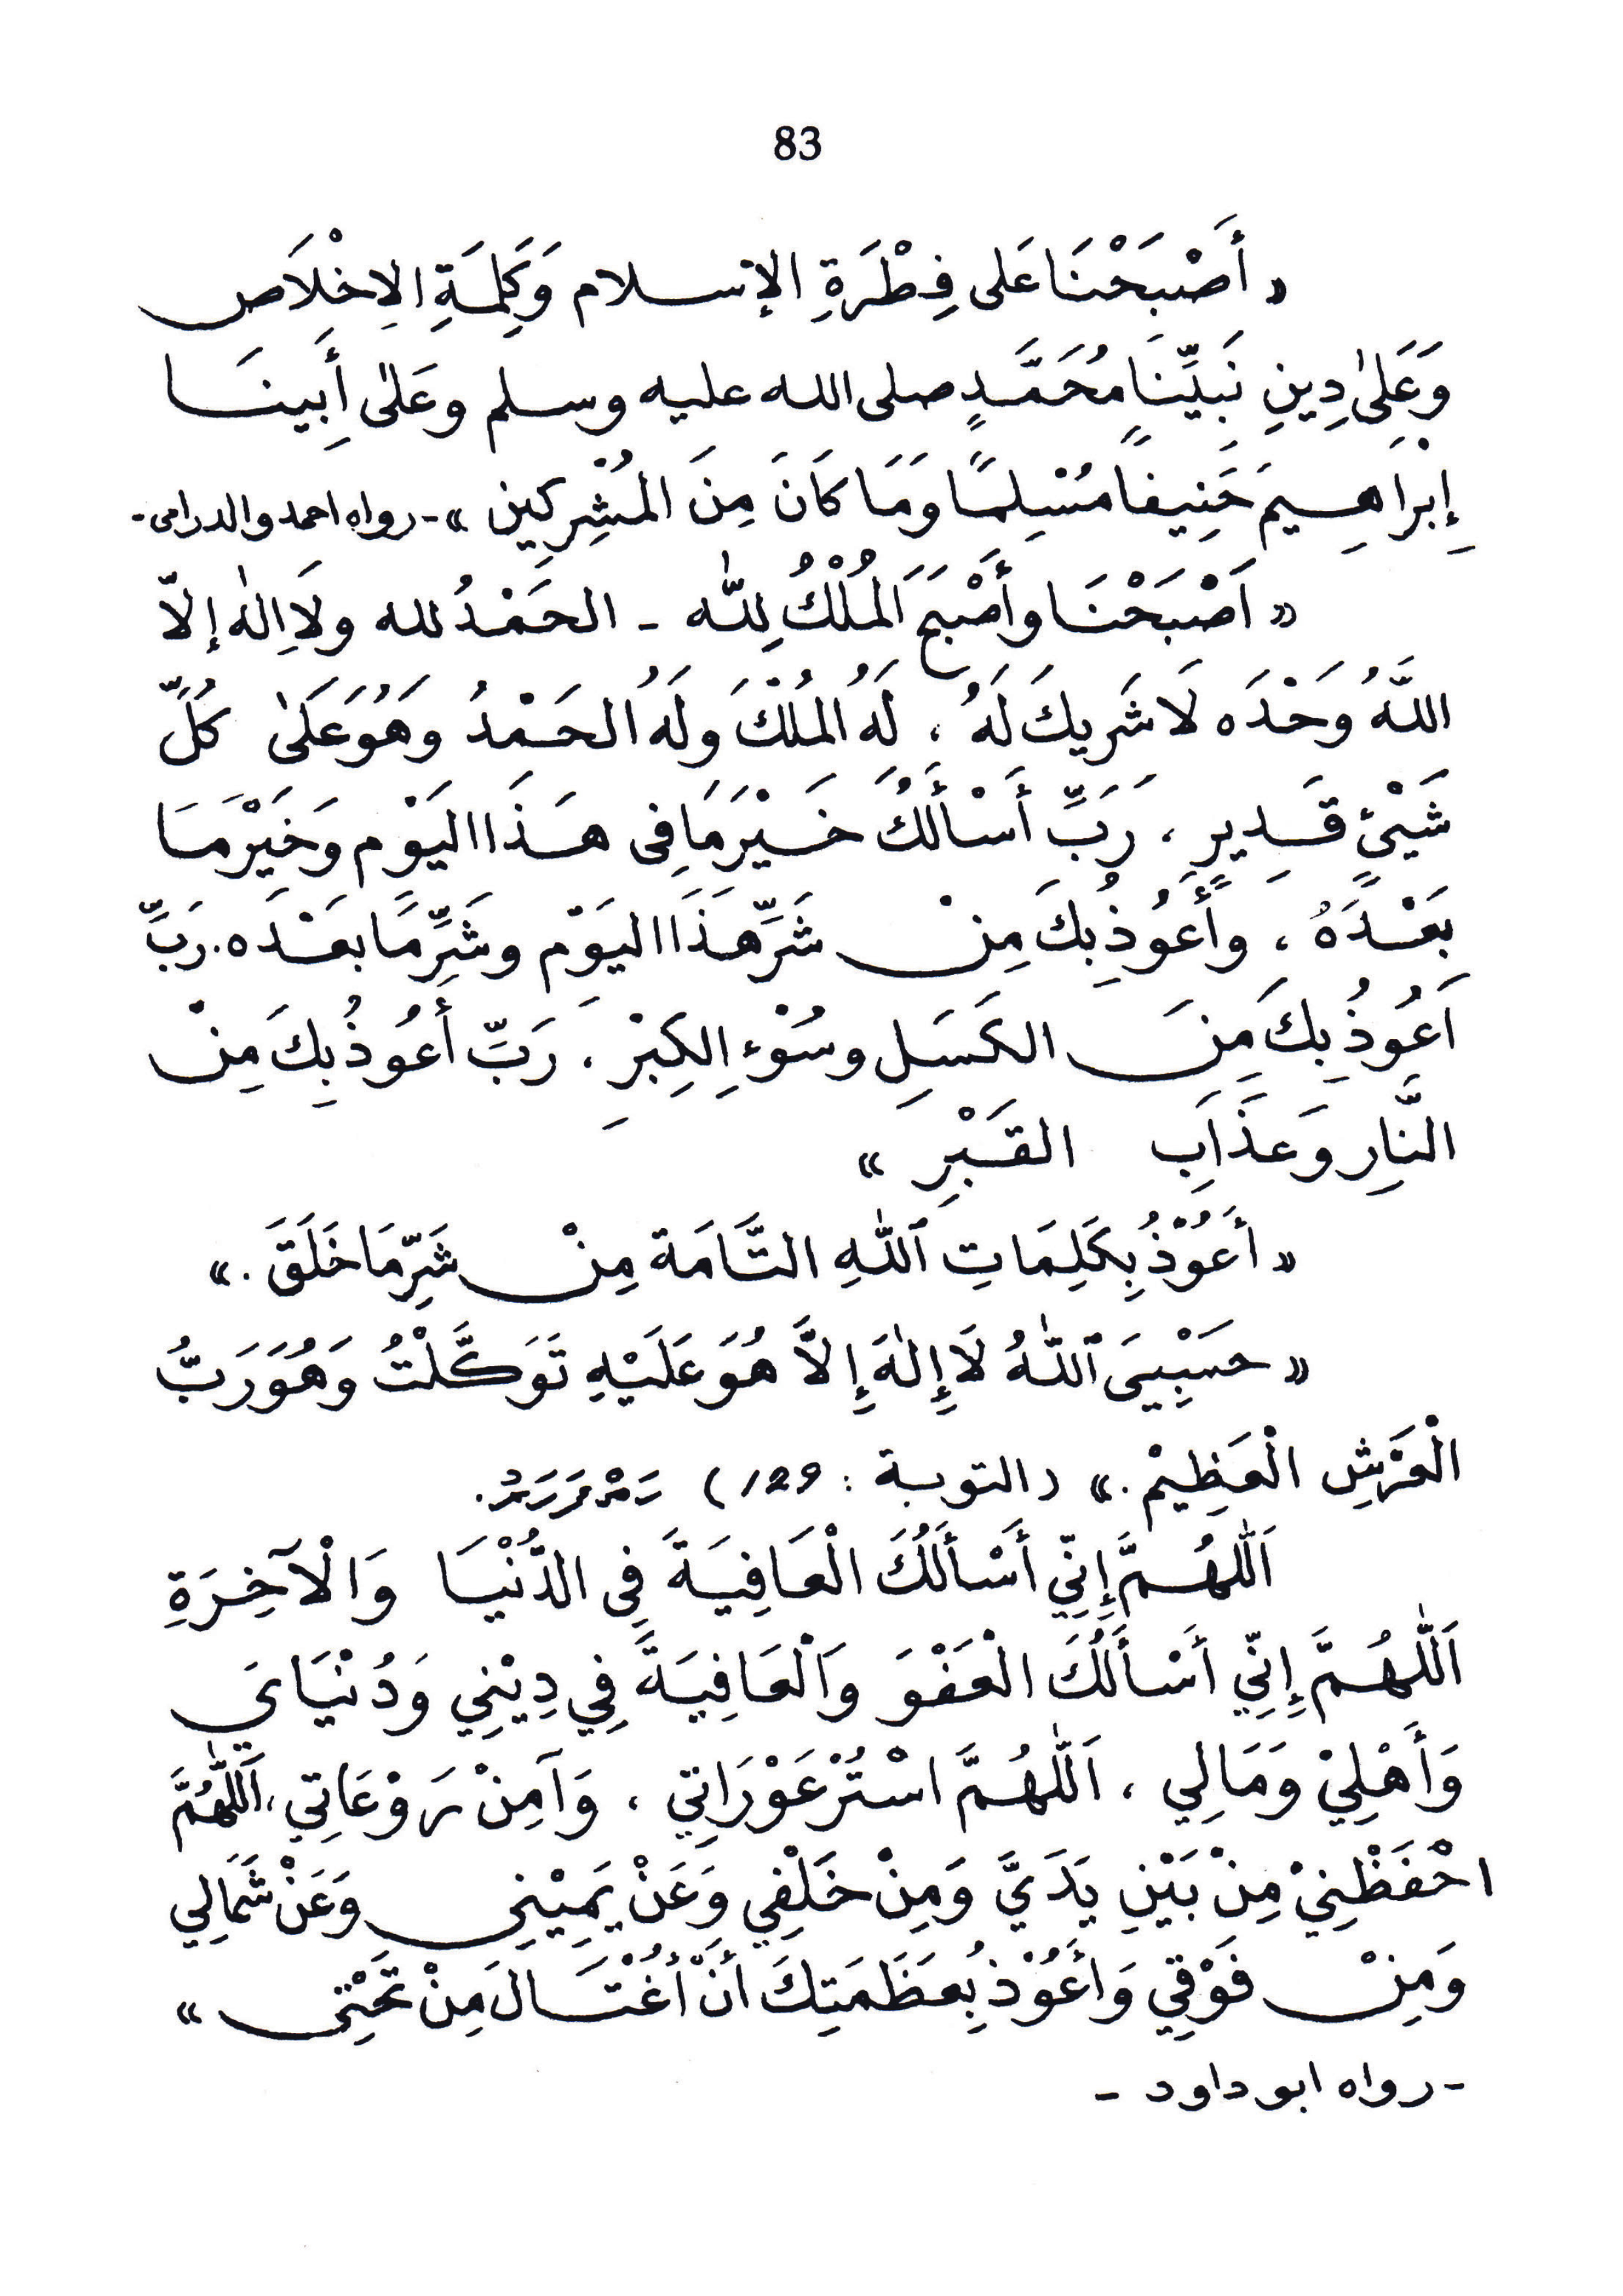 83
« أَصْبَحْنَا عَلى فِطْرَةِ الإسلام وَكَلِمَةِ الاِخْلَاصِ
وَعَلىٰ دِينِ نَبِيِّنَا مُحَمَّدٍ صلى الله عليه وسلم وعَلىٰ أَبِينَا
إِبْرَاهِيمَ حَنِيفًا مُسْلِمًا وَمَا كَانَ مِنَ المُشْرِكِين » -رواه احمد والدرامى-
« اَصْبَحْنَا وأَصْبَحَ المُلْكُ لِلّٰه - الحَمْدُ لله ولَا اِلٰه إلاّ
اللَّهُ وحْدَه لَا شَرِيكَ لَهُ ، لَهُ المُلْكَ ولَهُ الحَمْدُ وهُوَ عَلَىٰ كُلِّ
شَيْئٍ قَدِيرٍ ، رَبِّ أَسْأَلُكَ خَيْرَ مَا فِى هَذَا اليَوْمِ وَخَيْرَ مَا
بَعْدَهُ ، وأَعُوذُ بِكَ مِنْ شَرِّ هَذَا اليَوْم وشَرِّ مَا بعْدَه. رَبِّ
اَعُوذُ بِكَ مِنَ الكَسَلِ وسُوْءِ الكِبْرِ ، رَبِّ أعُوذُ بِكَ مِنْ
النَّارِ وَعَذَابِ القَبْرِ »
« أَعُوْذُ بِكَلِمَاتِ ٱللّٰهِ التَّامَة مِنْ شَرِّ مَا خَلَقَ . »
« حَسْبِيَى ٱللّٰهُ لَا إِلٰهَ إِلاَّ هُوَ عَلَيْهِ تَوَكَّلْتُ وَهُوَ رَبُّ
الْعَرْشِ الْعَظِيْمِ . » (التوبة : 129) ހަތްފަހަރު.
اَللّٰهُمَّ إِنِّي أَسْأَلُكَ الْعَافِيَةَ فِى الدُّنْيَا وَالْآخِرَةِ
اَللّٰهُمَّ إِنِّي أَسْأَلُكَ الْعَفْوَ وَالْعَافِيَةَ فِي دِيْنِي وَدُنْيَايَ
وَأَهْلِيْ وَمَالِي ، اَللّٰهُمَّ اسْتُرْ عَوْرَاتِي ، وَآمِنْ رَوْعَاتِي ، اَللّٰهُمَّ
احْفَظْنِيْ مِنْ بَيْنِ يَدَيَّ وَمِنْ خَلْفِي وَعَنْ يَمِيْنِي وَعَنْ شَمَالِي
وَمِنْ فَوْقِي وَأَعُوْذُ بِعَظَمَتِكَ أَنْ أُغْتَالَ مِنْ تَحْتِى »
- رواه ابو داود -